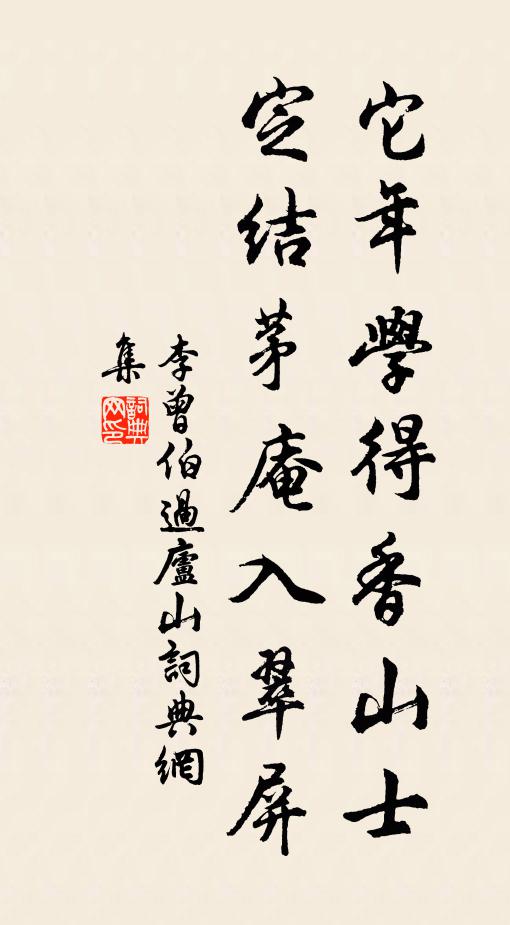 它年學得香山士
定結茅庵入翠屏
李曾伯過廬山詞典網
集
詞典網印